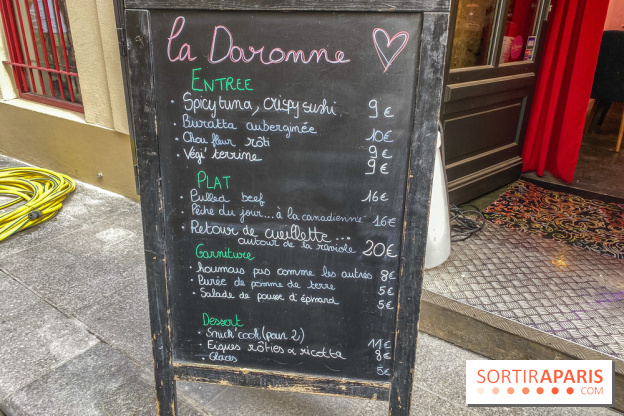 la Daronne
ENTREE
• Spicy tuna, crispy sushi 9€
Burratta auberginée 10€
• Chou fleur rôti 9€
• Végi' terrine 9€
PLAT
• Pulled beef 16€
• Pêche du jour...à la canadienne 16€
• Retour de cueillette...
autour de la raviole 20€
Garniture
• houmous pas comme les autres 8€
• Purée de pomme de terre 5€
• Salade de pousse d'épinard 5€
Dessert
• Snick'cook (pour 2) 11€
• Figues rôties & ricotta 8€
• Glaces 5€
SORTIRAPARIS
.COM
SORTIRAPARIS
.COM